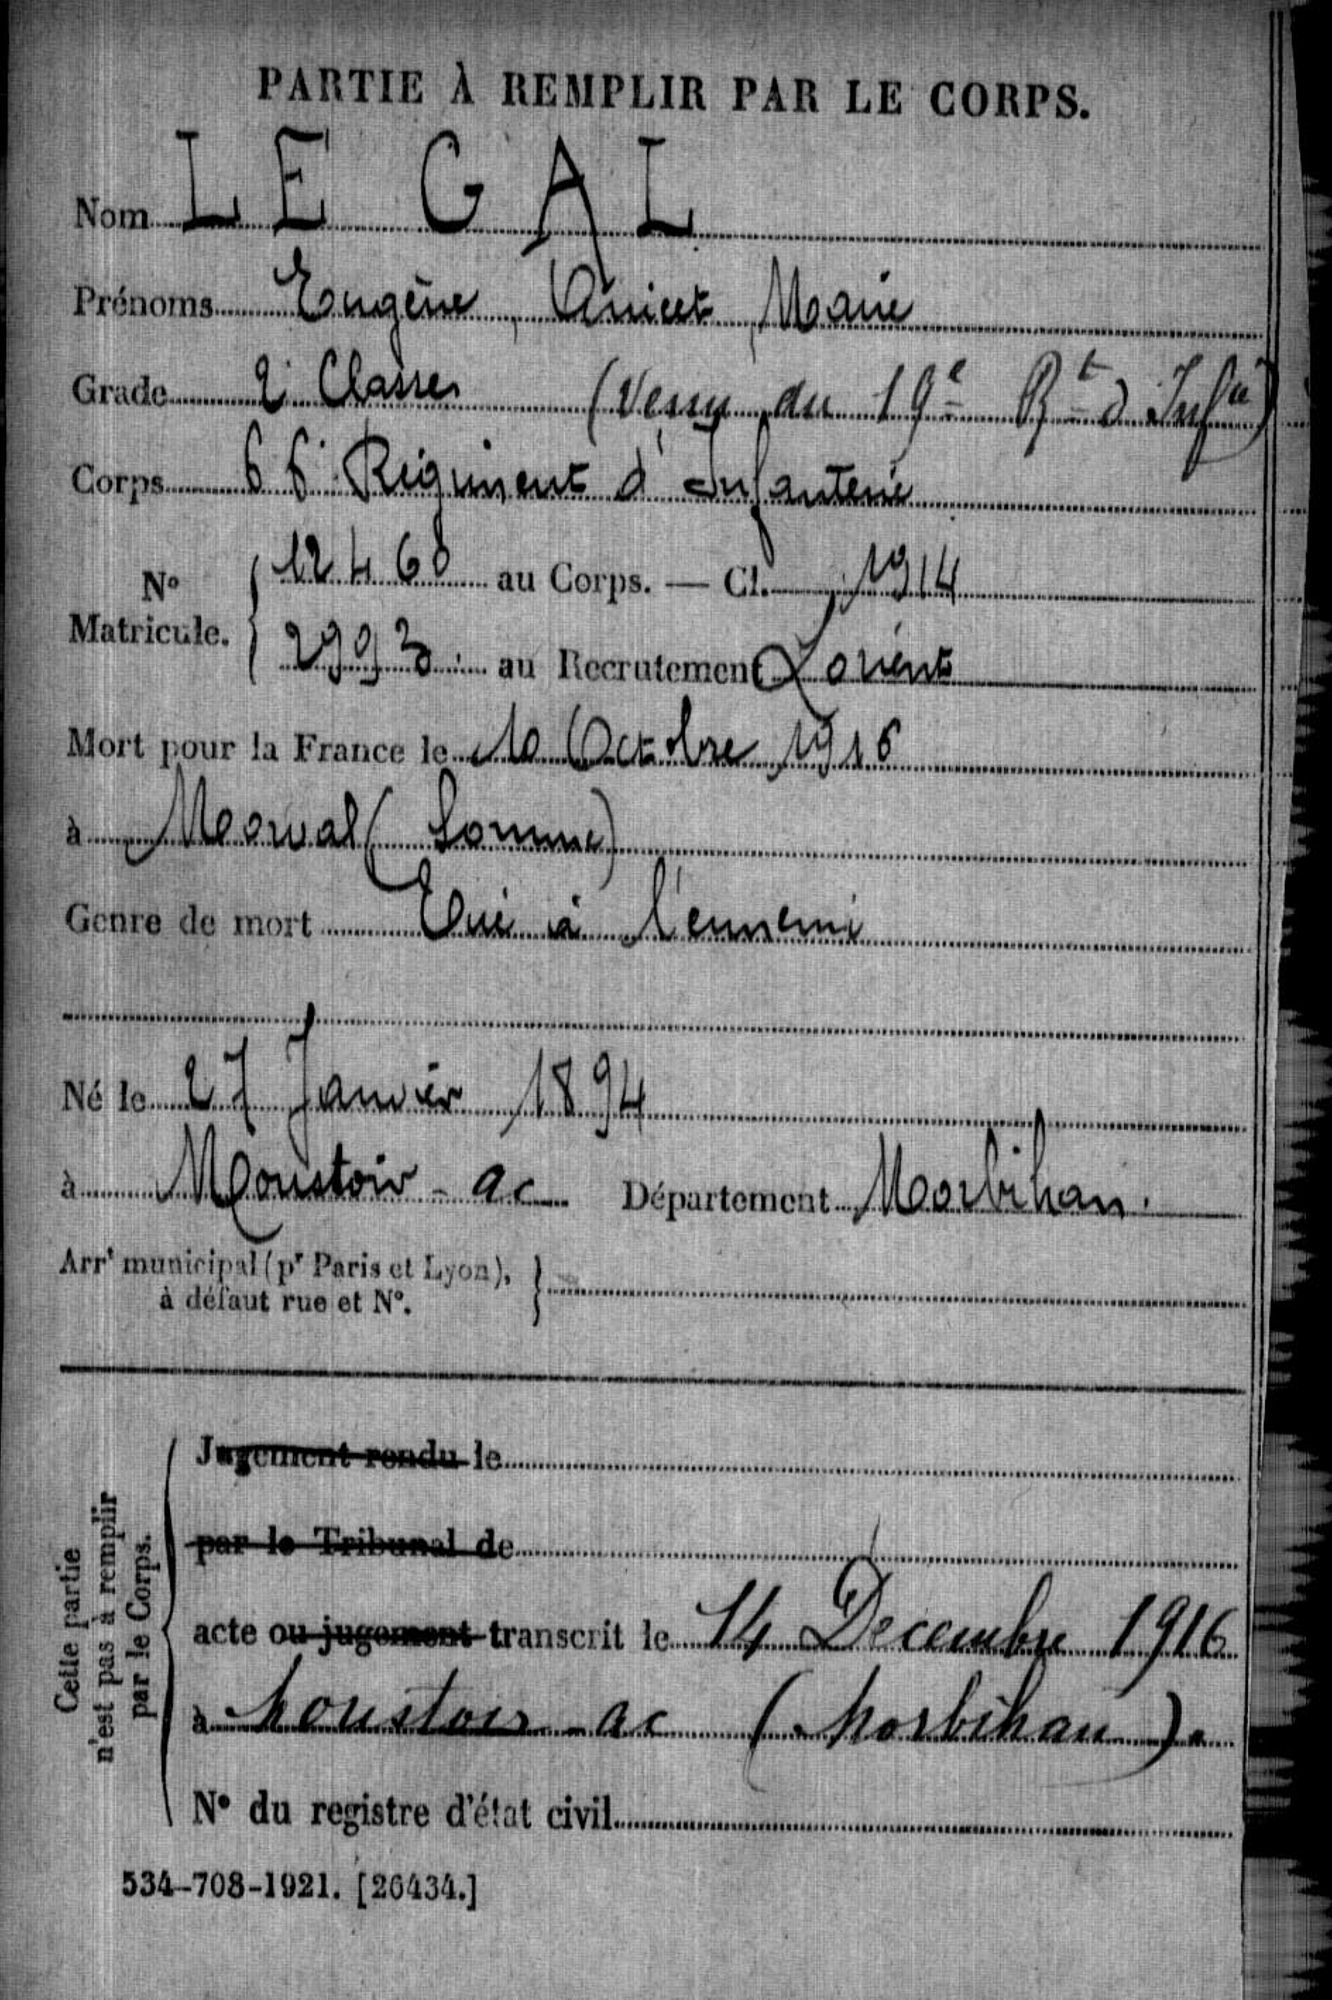 PARTIE À REMPLIR PAR LE CORPS.
Nom LE GAL
Prénoms Eugène, Anicet, Marie
Grade 2e Classe (Venu du 19e Rt d'Infie)
Corps 66e Régiment d'Infanterie
No Matricule. { 12468 au Corps. — Cl. 1914
2993 au Recrutement Lorient
Mort pour la France le 10 Octobre 1916
à Morval (Somme)
Genre de mort Tué à l'ennemi
Né le 27 Janvier 1894
à Moustoir-ac Département Morbihan.
Arrt municipal (pr Paris et Lyon), à défaut rue et No. }
Cette partie n'est pas à remplir par le Corps.
Jugement rendu le
par le Tribunal de
acte ou jugement transcrit le 14 Décembre 1916
à Moustoir-ac (Morbihan).
No du registre d'état civil
534-708-1921. [26434.]